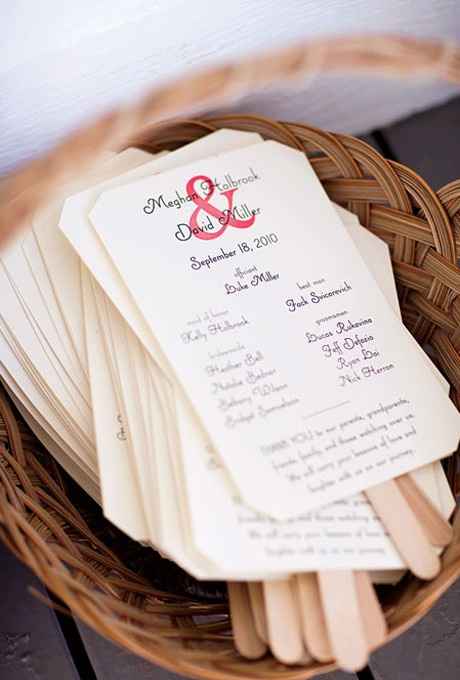 Meghan Holbrook
&
David Miller
September 18, 2010
officiant
Duke Miller
maid of honor
Kelly Holbrook
bridesmaids
Heather Bell
Natalie Bedner
Bethany Wilson
Bridget Samuelson
best man
Jack Svicarevich
groomsmen
Lucas Rukavina
Jeff Defazio
Ryan Doi
Nick Herron
THANK YOU to our parents, grandparents,
friends, family, and those watching over us.
We will carry your lessons of love and
laughter with us on our journey.
and those watching
We will carry your lessons of love
laughter with us on our